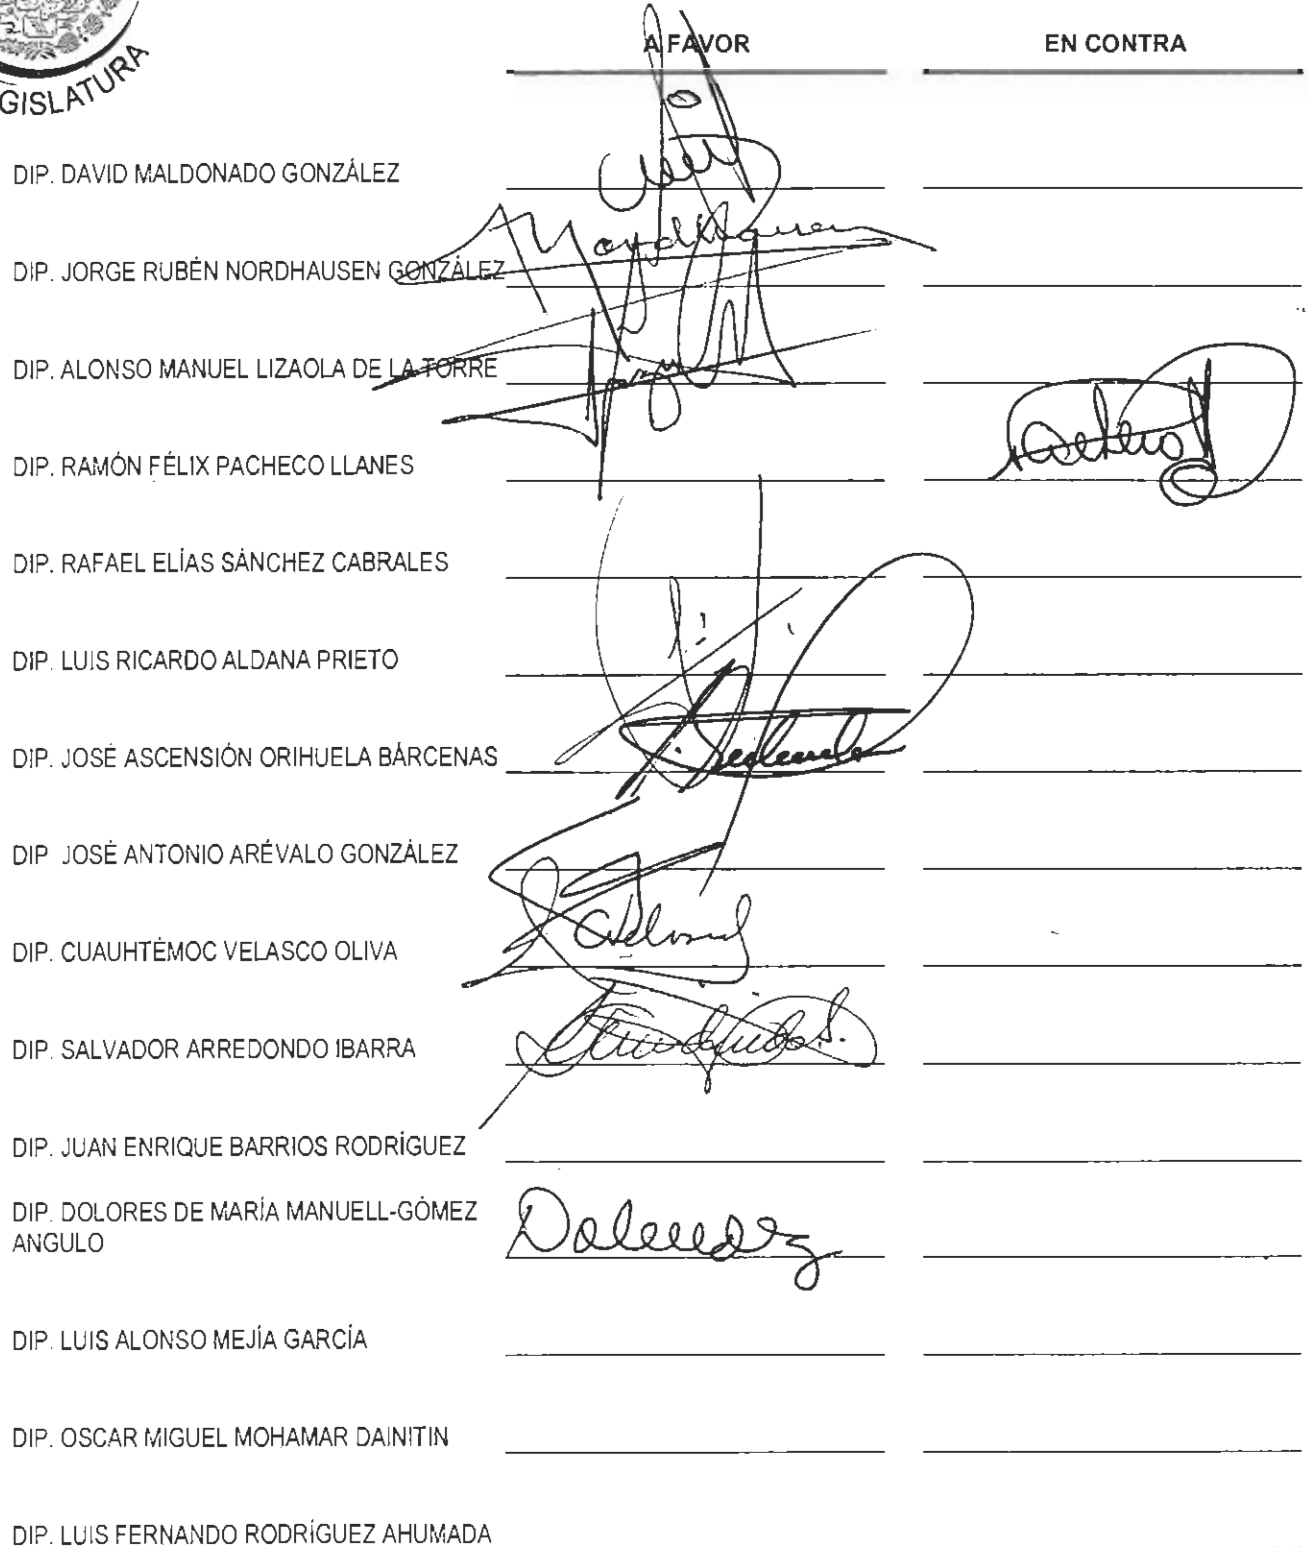 GISLATURA
A FAVOR EN CONTRA
DIP. DAVID MALDONADO GONZÁLEZ
DIP. JORGE RUBÉN NORDHAUSEN GONZÁLEZ
DIP. ALONSO MANUEL LIZAOLA DE LA TORRE
DIP. RAMÓN FÉLIX PACHECO LLANES
DIP. RAFAEL ELÍAS SÁNCHEZ CABRALES
DIP. LUIS RICARDO ALDANA PRIETO
DIP. JOSÉ ASCENSIÓN ORIHUELA BÁRCENAS
DIP JOSÉ ANTONIO ARÉVALO GONZÁLEZ
DIP. CUAUHTÉMOC VELASCO OLIVA
DIP. SALVADOR ARREDONDO IBARRA
DIP. JUAN ENRIQUE BARRIOS RODRÍGUEZ
DIP. DOLORES DE MARÍA MANUELL-GÓMEZ
ANGULO
DIP. LUIS ALONSO MEJÍA GARCÍA
DIP. OSCAR MIGUEL MOHAMAR DAINITIN
DIP. LUIS FERNANDO RODRÍGUEZ AHUMADA